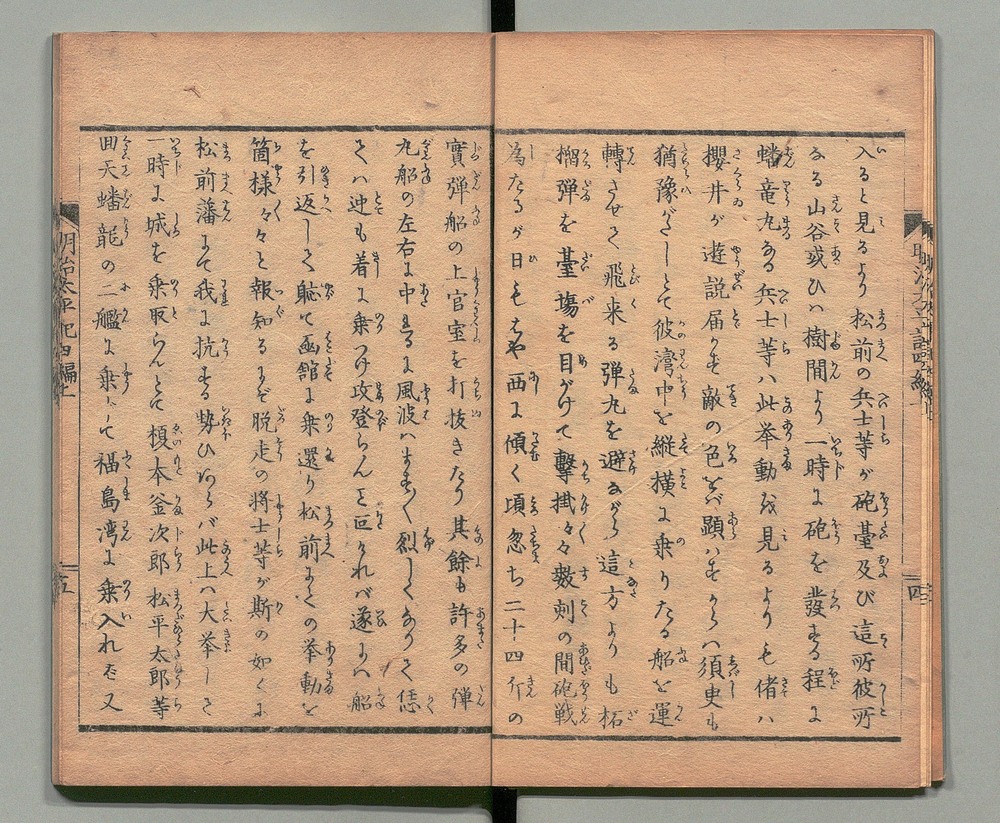 入ると見るより松前の兵士等が砲臺及び這所彼所
なる山谷或ひハ樹間より一時に砲を發する程に
蟠竜丸なる兵士等ハ此挙動を見るよりも偖ハ
櫻井が遊説届かず敵の色をバ顕ハすからハ須臾も
猶豫がしとて彼灣中を縦横に乗りたる船を運
轉させて飛来る弾丸を避ながら這方よりも柘
榴弾を臺場を目がけて撃掛々々数刻の間砲戦
為たるが日もはや西に傾く頃忽ち二十四斤の
實弾船の上官室を打抜きたり其餘も許多の弾
丸船の左右に中るに風波ハます〳〵烈しくありて恁
てハ迚も着に乗つけ攻登らんこと叵ければ遂にハ船
を引返して舩て函館に乗還り松前にての挙動を
箇様々々と報知るにぞ脱走の将士等が斯の如くに
松前藩にて我に抗する勢ひならバ此上ハ大挙して
一時に城を乗取らんとて榎本釜次郎松平太郎等
回天蟠龍の二艦に乗して福島湾に乗入れバ又
明治太平記四編上
四
五